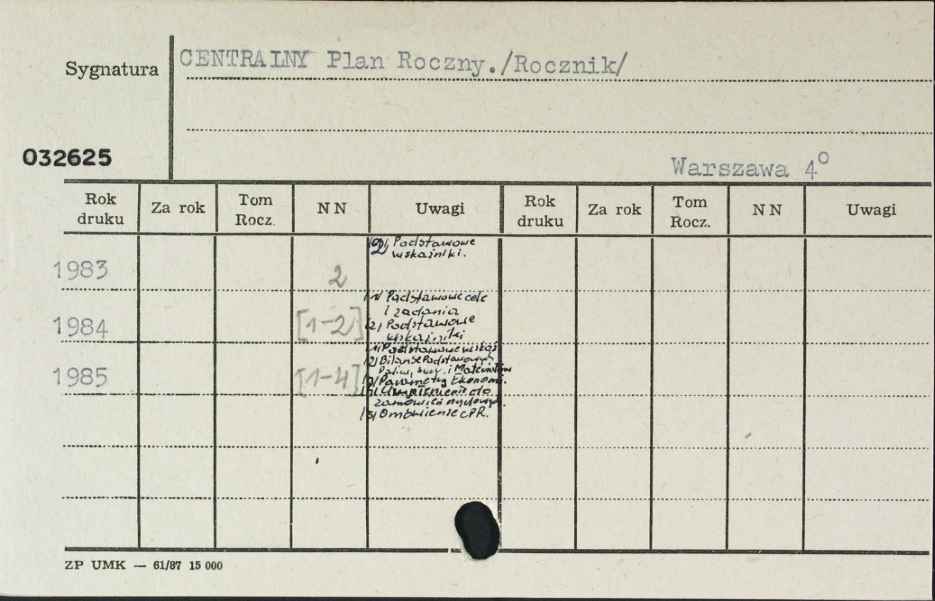 CENTRALNY Plan Roczny./Rocznik/
Sygnatura
032625
Warszawa 4°
Rok druku Za rok Tom Rocz. NN Uwagi Rok druku Za rok Tom Rocz. NN Uwagi
/2/ Podstawowe
wskaźniki.
1983 2
/1/ Podstawowe cele
i zadania
1984 [1-2] /2/ Podstawowe
wskaźniki
/1/ Podstawowe wskaź.
/2/ Bilanse Podstawowych
1985 [1-4] Paliw, i Materiałów
Parametry Ekonom.
do
zamówień
/5/ Omówienie CPR.
ZP UMK — 61/87 15 000